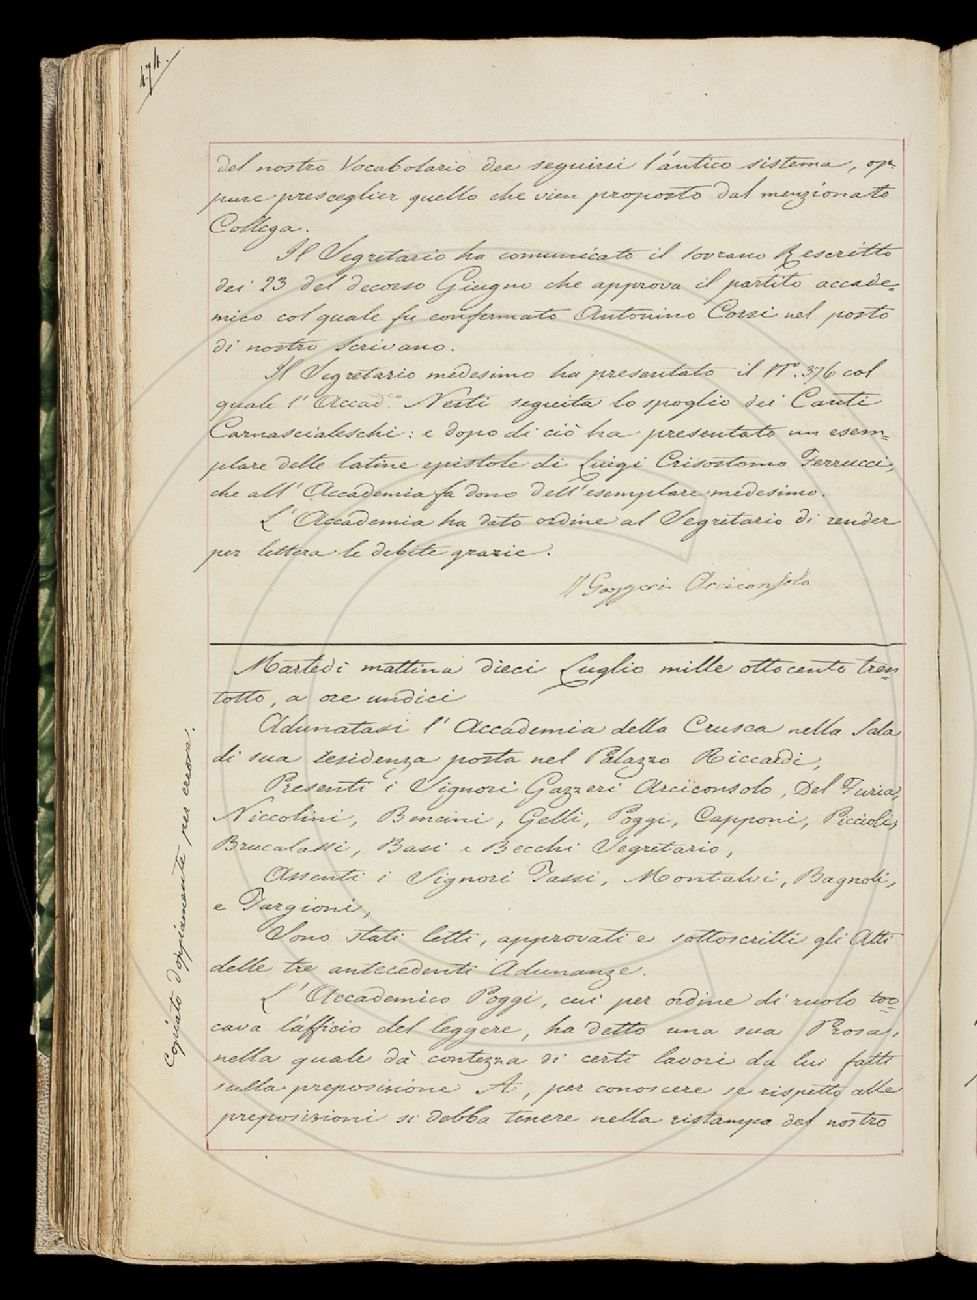 474.
del nostro Vocabolario dee seguirsi l'antico sistema, op-
pure presceglier quello che vien proposto dal menzionato
Collega.
Il Segretario ha comunicato il sovrano Rescritto
dei 23 del decorso Giugno che approva il partito accade=
mico col quale fu confermato Antonino Corsi nel posto
di nostro scrivano.
Il Segretario medesimo ha presentato il N.° 376 col
quale l'Accad.co Nesti seguita lo spoglio dei Canti
Carnascialeschi: e dopo di ciò ha presentato un esem=
plare delle latine epistole di Luigi Crisostomo Ferrucci,
che all'Accademia fa dono dell'esemplare medesimo.
L'Accademia ha dato ordine al Segretario di render
per lettera le debite grazie.
Gazzeri Arciconsolo
Martedì mattina dieci Luglio mille ottocento tren=
totto, a ore undici
Adunatasi l'Accademia della Crusca nella Sala
di sua residenza posta nel Palazzo Riccardi,
Presenti i Signori Gazzeri Arciconsolo, Del Furia,
Niccolini, Bencini, Gelli, Poggi, Capponi, Piccioli,
Brucalassi, Basi e Becchi Segretario,
Assenti i Signori Tassi, Montalvi, Bagnoli,
e Targioni,
Sono stati letti, approvati e sottoscritti gli Atti
delle tre antecedenti Adunanze.
L'Accademico Poggi, cui per ordine di ruolo toc=
cava l'ufficio del leggere, ha detto una sua Prosa,
nella quale dà contezza di certi lavori da lui fatti
sulla preposizione A, per conoscere se rispetto alle
preposizioni si debba tenere nella ristampa del nostro
Copiato doppiamente per errore.